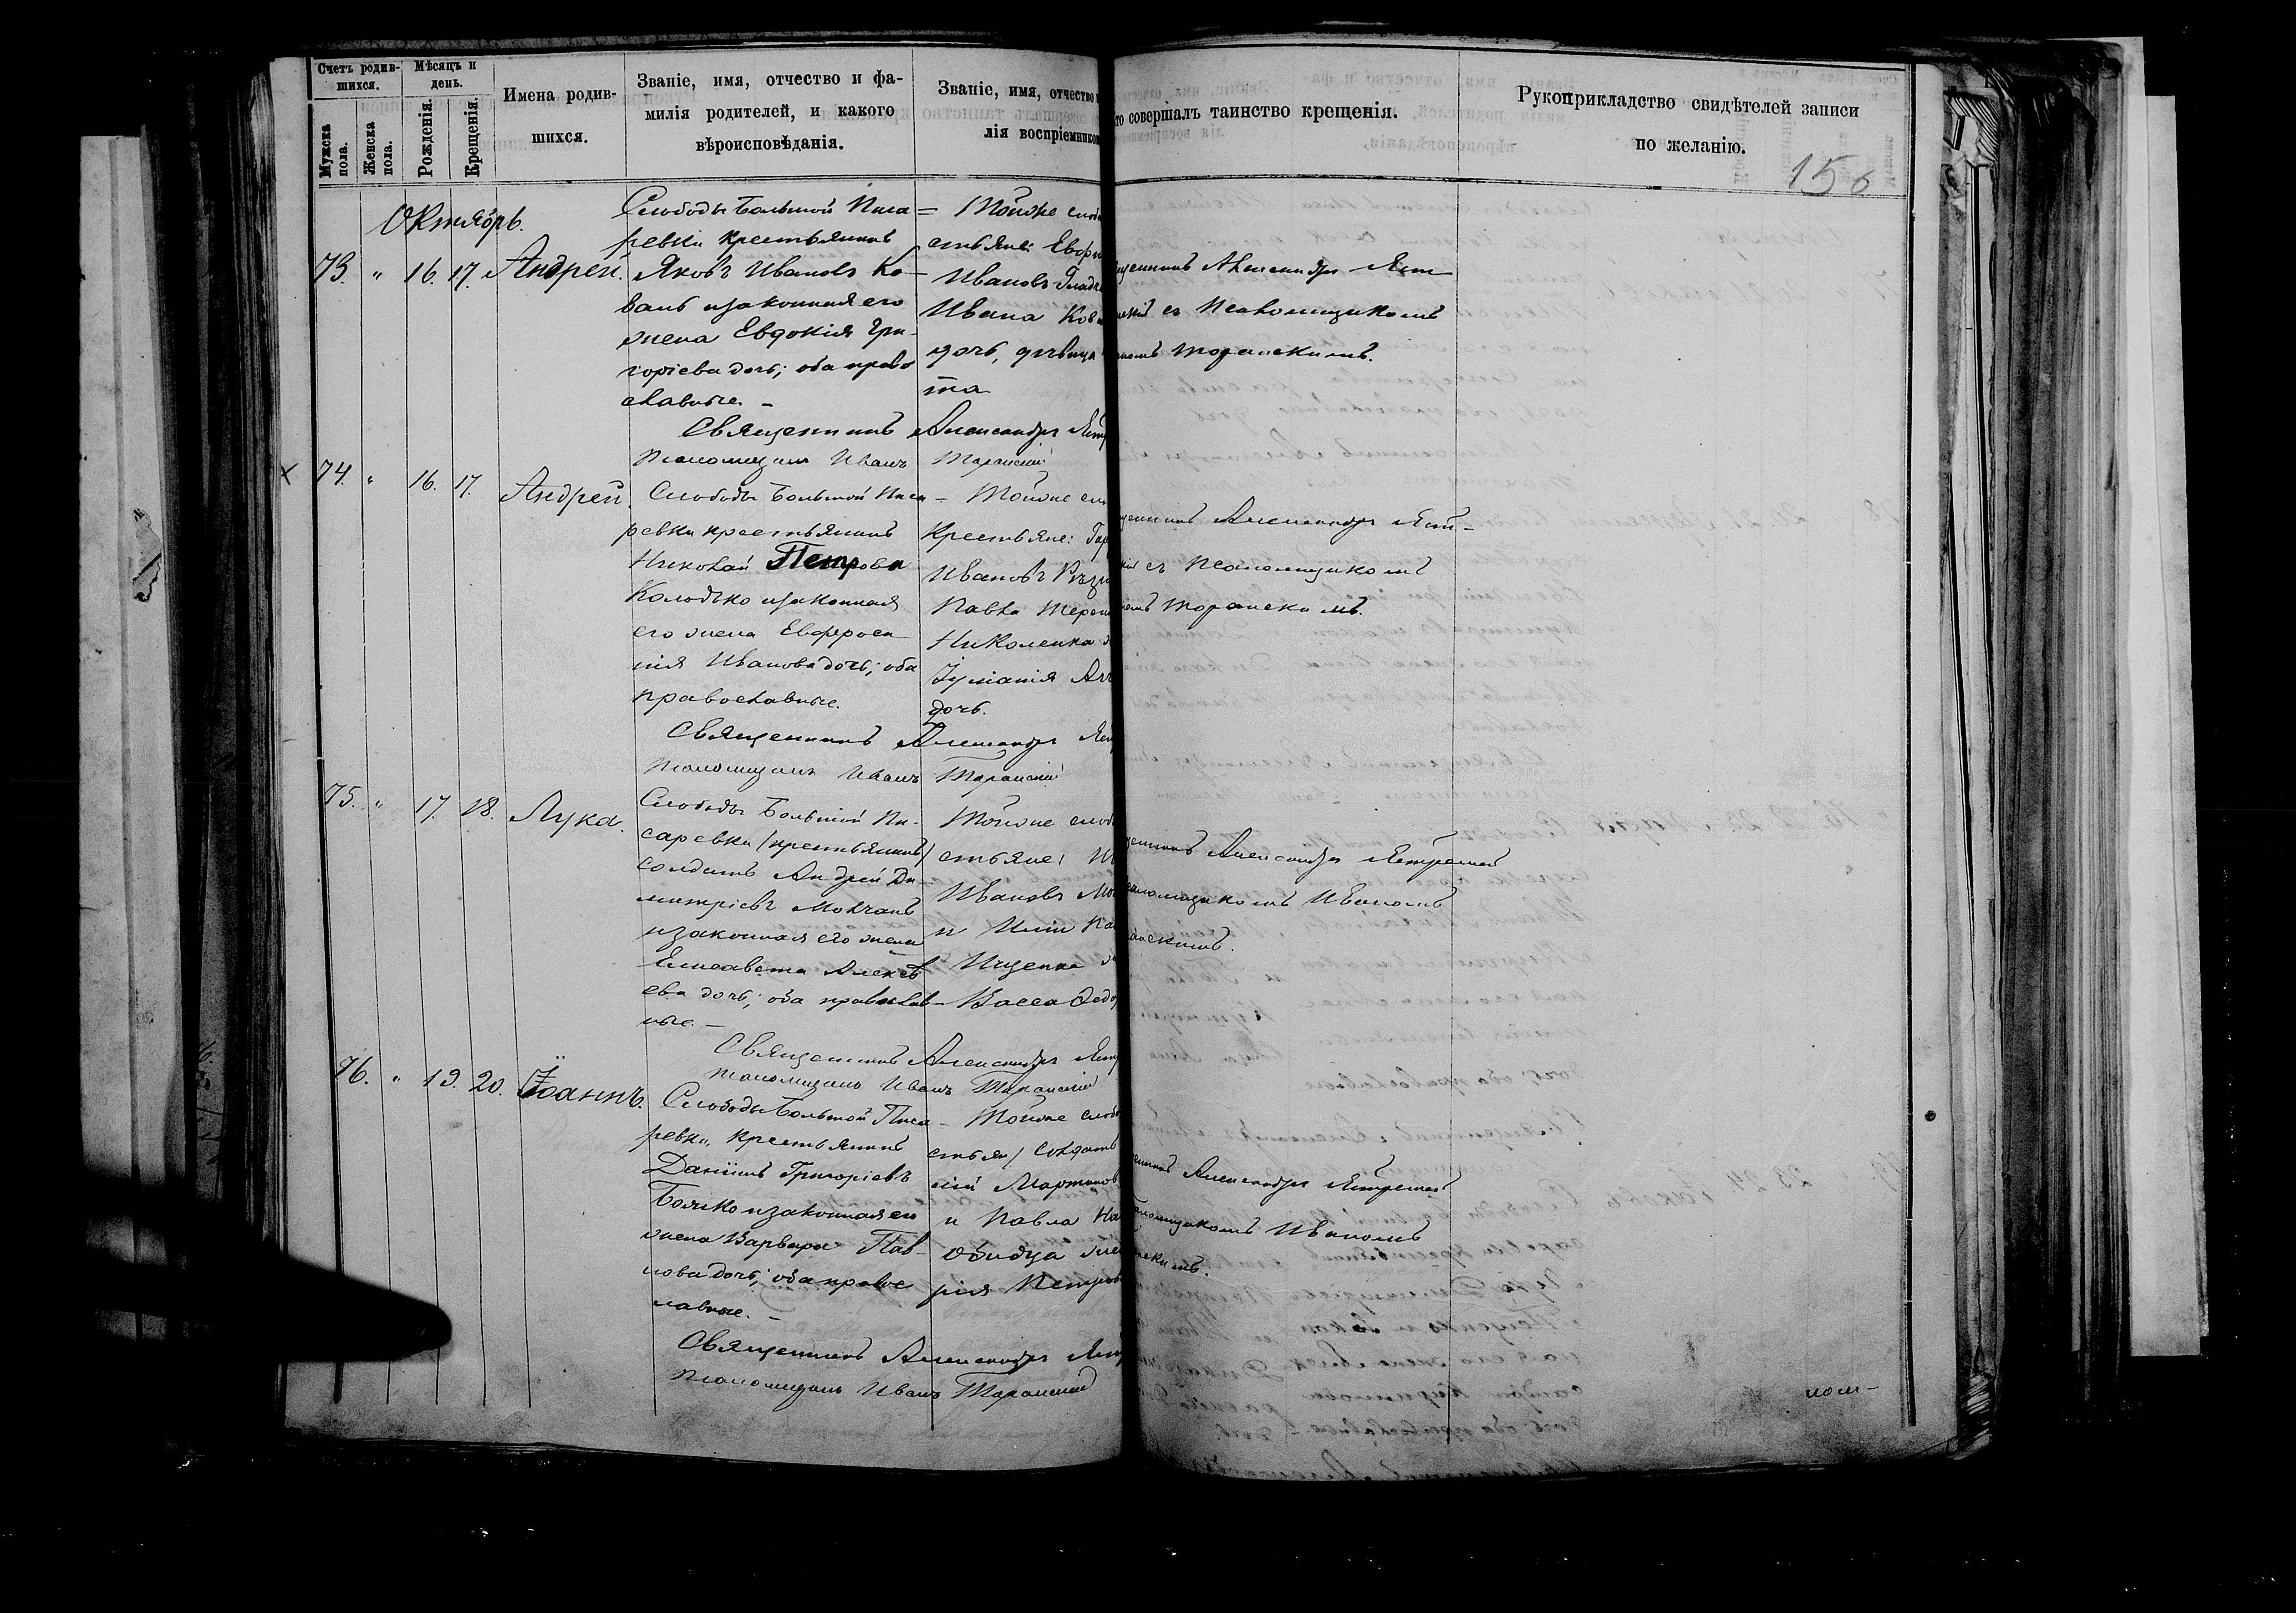 Счетъ родив-
шихся.
Мужска
пола.
Женска
пола.
Мѣсяцъ и
день.
Рожденія.
Крещенія.
Имена родив-
шихся.
Званіе, имя, отчество и фа-
милія родителей, и какого
вѣроисповѣданія.
Званіе, имя, отчество
лія воспріемников
то совершалъ таинство крещенія.
Рукоприкладство свидѣтелей записи
по желанію.
156
Октябрь.
73. " 16. 17. Андрей.
Слободы Большой Писа
ревки крестьянинъ
Яковъ Ивановъ Ко-
валь изаконная его
жена Евдокія Гри-
горіева дочь; оба право
славные. –
= Тойже слоб
стьяне: Евфи
Ивановъ Гладч
Ивана Ков
дочь, дѣвица
та
щенникъ Александръ Яст-
скій съ Псаломщикомъ
номъ Торанскимъ.
Священникъ Александръ Яст
псаломщикъ Иванъ Торанскій
х 74. " 16. 17. Андрей.
Слободы Большой Писа
ревки крестьянинъ
Николай Петровъ
Колодько изаконная
его жена Евфроси
нія Иванова дочь; оба
православные.
– Тойже сло
Крестьяне: Гар
Ивановъ Рѣзн
Павла Терен
Николенка ж
Іуліанія Ан
дочь.
щенникъ Александръ Яст-
кій съ Псаломщикомъ
номъ Торанскимъ.
Священникъ Александръ Яст
псаломщикъ Иванъ Торанскій
75. " 17. 18. Лука.
Слободы Большой Пи-
саревки /крестьянинъ/
солдатъ Андрей Ди-
митріевъ Молчанъ
изаконная его жена
Елисавета Алексѣ
ева дочь; оба православ-
ные. –
Тойже слоб
стьяне:
Ивановъ Мо
и Иліи Па
Ищенка ж
Васса Ѳедо
щенникъ Александръ Ястремскій
саломщикомъ Иваномъ
анскимъ.
Священникъ Александръ Яст
псаломщикъ Иванъ Торанскій
76. " 19. 20. Іоаннъ.
Слободы Большой Писа
ревки, крестьянинъ
Даніилъ Григоріевъ
Божко изаконная его
жена Варвара Пав-
лова дочь; оба правос
лавные. –
– Тойже слоб
стьян/ солдатъ
сій Мартинов
и Павла На
Обидца жен
рія Петров
енникъ Александръ Ястремскій
саломщикомъ Иваномъ
нскимъ.
Священникъ Александръ Яст
псаломщикъ Иванъ Торанскій